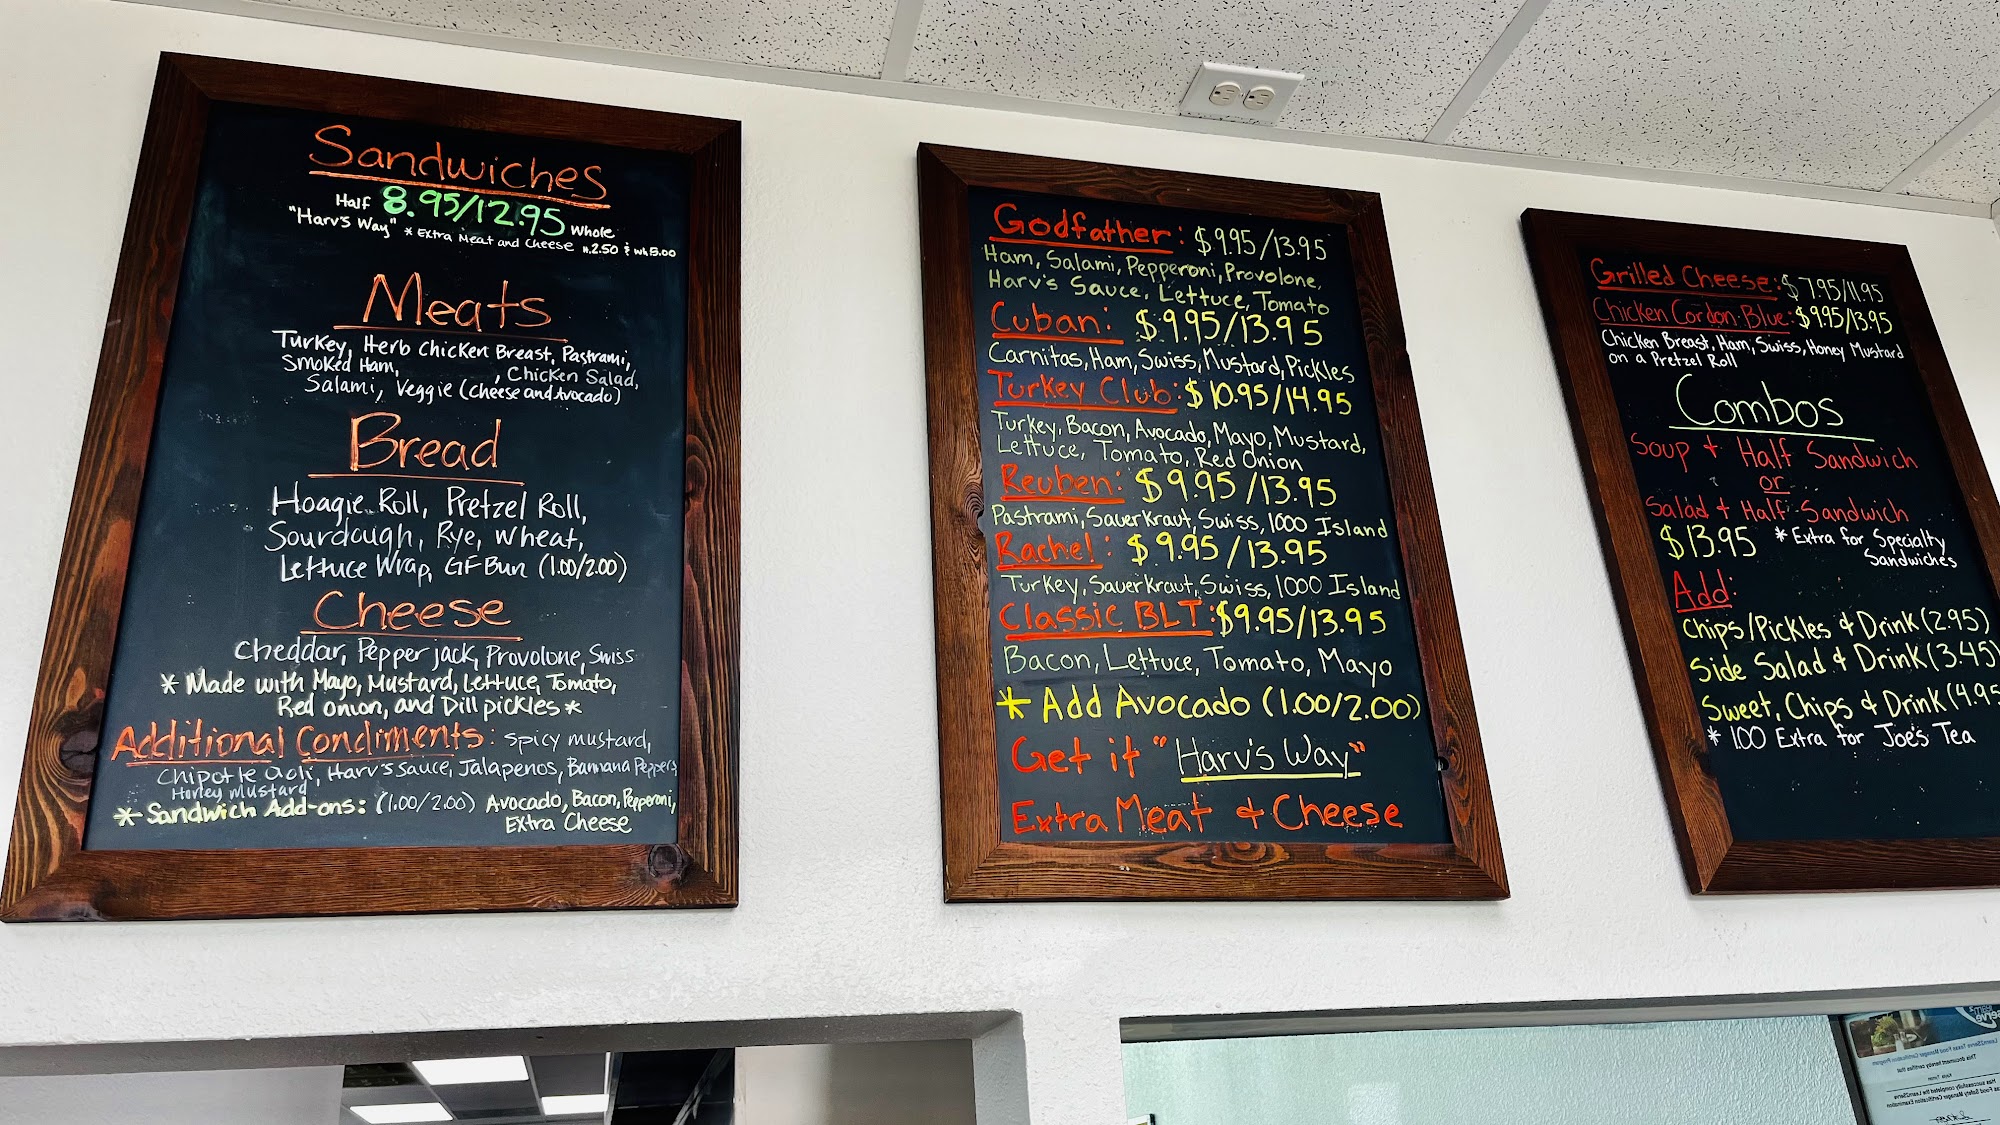 Sandwiches
Half 8.95/12.95 Whole
"Harv's Way" * Extra Meat and Cheese H.2.50 & Wh5.00
Meats
Turkey, Herb Chicken Breast, Pastrami,
Smoked Ham, , Chicken Salad,
Salami, Veggie (Cheese and Avocado)
Bread
Hoagie Roll, Pretzel Roll,
Sourdough, Rye, Wheat,
Lettuce Wrap, GF Bun (1.00/2.00)
Cheese
Cheddar, Pepper jack, Provolone, Swiss
* Made with Mayo, Mustard, Lettuce, Tomato,
Red onion, and Dill pickles *
Additional Condiments: Spicy mustard,
Chipotle aoli, Harv's sauce, Jalapenos, Bannana Peppers,
Honey mustard
* Sandwich Add-ons: (1.00/2.00) Avocado, Bacon, Pepperoni,
Extra Cheese
Godfather: $9.95/13.95
Ham, Salami, Pepperoni, Provolone,
Harv's Sauce, Lettuce, Tomato
Cuban: $9.95/13.95
Carnitas, Ham, Swiss, Mustard, Pickles
Turkey Club: $10.95/14.95
Turkey, Bacon, Avocado, Mayo, Mustard,
Lettuce, Tomato, Red Onion
Reuben: $9.95/13.95
Pastrami, Sauerkraut, Swiss, 1000 Island
Rachel: $9.95/13.95
Turkey, Sauerkraut, Swiss, 1000 Island
Classic BLT: $9.95/13.95
Bacon, Lettuce, Tomato, Mayo
* Add Avocado (1.00/2.00)
Get it "Harv's Way"
Extra Meat & Cheese
Grilled Cheese: $7.95/11.95
Chicken Cordon Blue: $9.95/13.95
Chicken Breast, Ham, Swiss, Honey Mustard
on a Pretzel Roll
Combos
Soup + Half Sandwich
or
Salad + Half Sandwich
$13.95 * Extra for Specialty
Sandwiches
Add:
Chips/Pickles & Drink (2.95)
Side Salad & Drink (3.45)
Sweet, Chips & Drink (4.95
* 1.00 Extra for Joe's Tea
Learn2Serve Texas Food Manager Certification Program
This document hereby certifies that